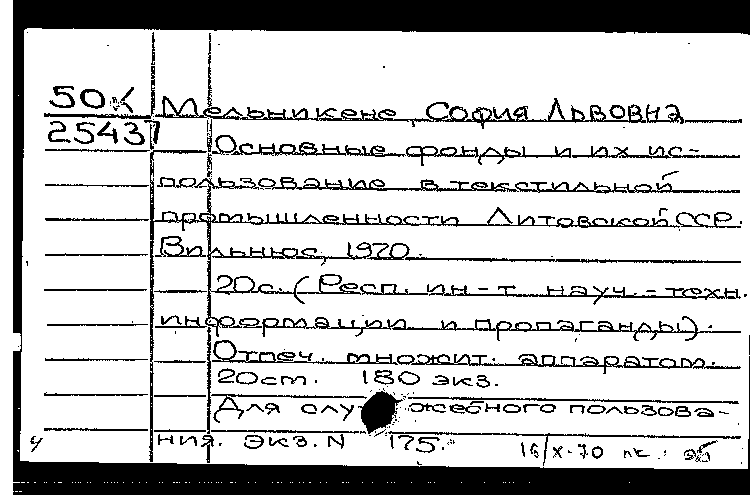 50К Мельникене, София Львовна
25437
Основные фонды и их ис-
пользование в текстильной
промышленности Литовской ССР.
Вильнюс, 1970.
20с. (Респ. ин-т науч.-техн.
информации и пропаганды).
Отпеч. множит. аппаратом.
20ст. 180 экз.
Для служебного пользова-
ния. Экз. N 175.
4 16/X-70 пк.